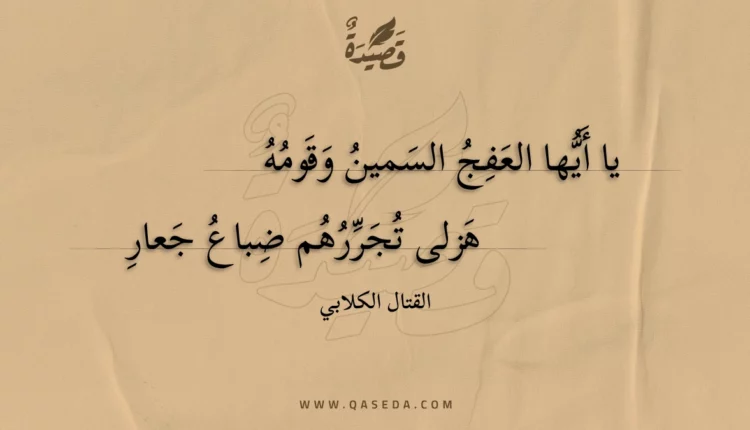 قَصِيدَةٌ
يا أَيُّها العَفِجُ السَمينُ وَقَومُهُ
هَزلى تُجَرِّرُهُم ضِباعُ جَعارِ
القتال الكلابي
WWW.QASEDA.COM